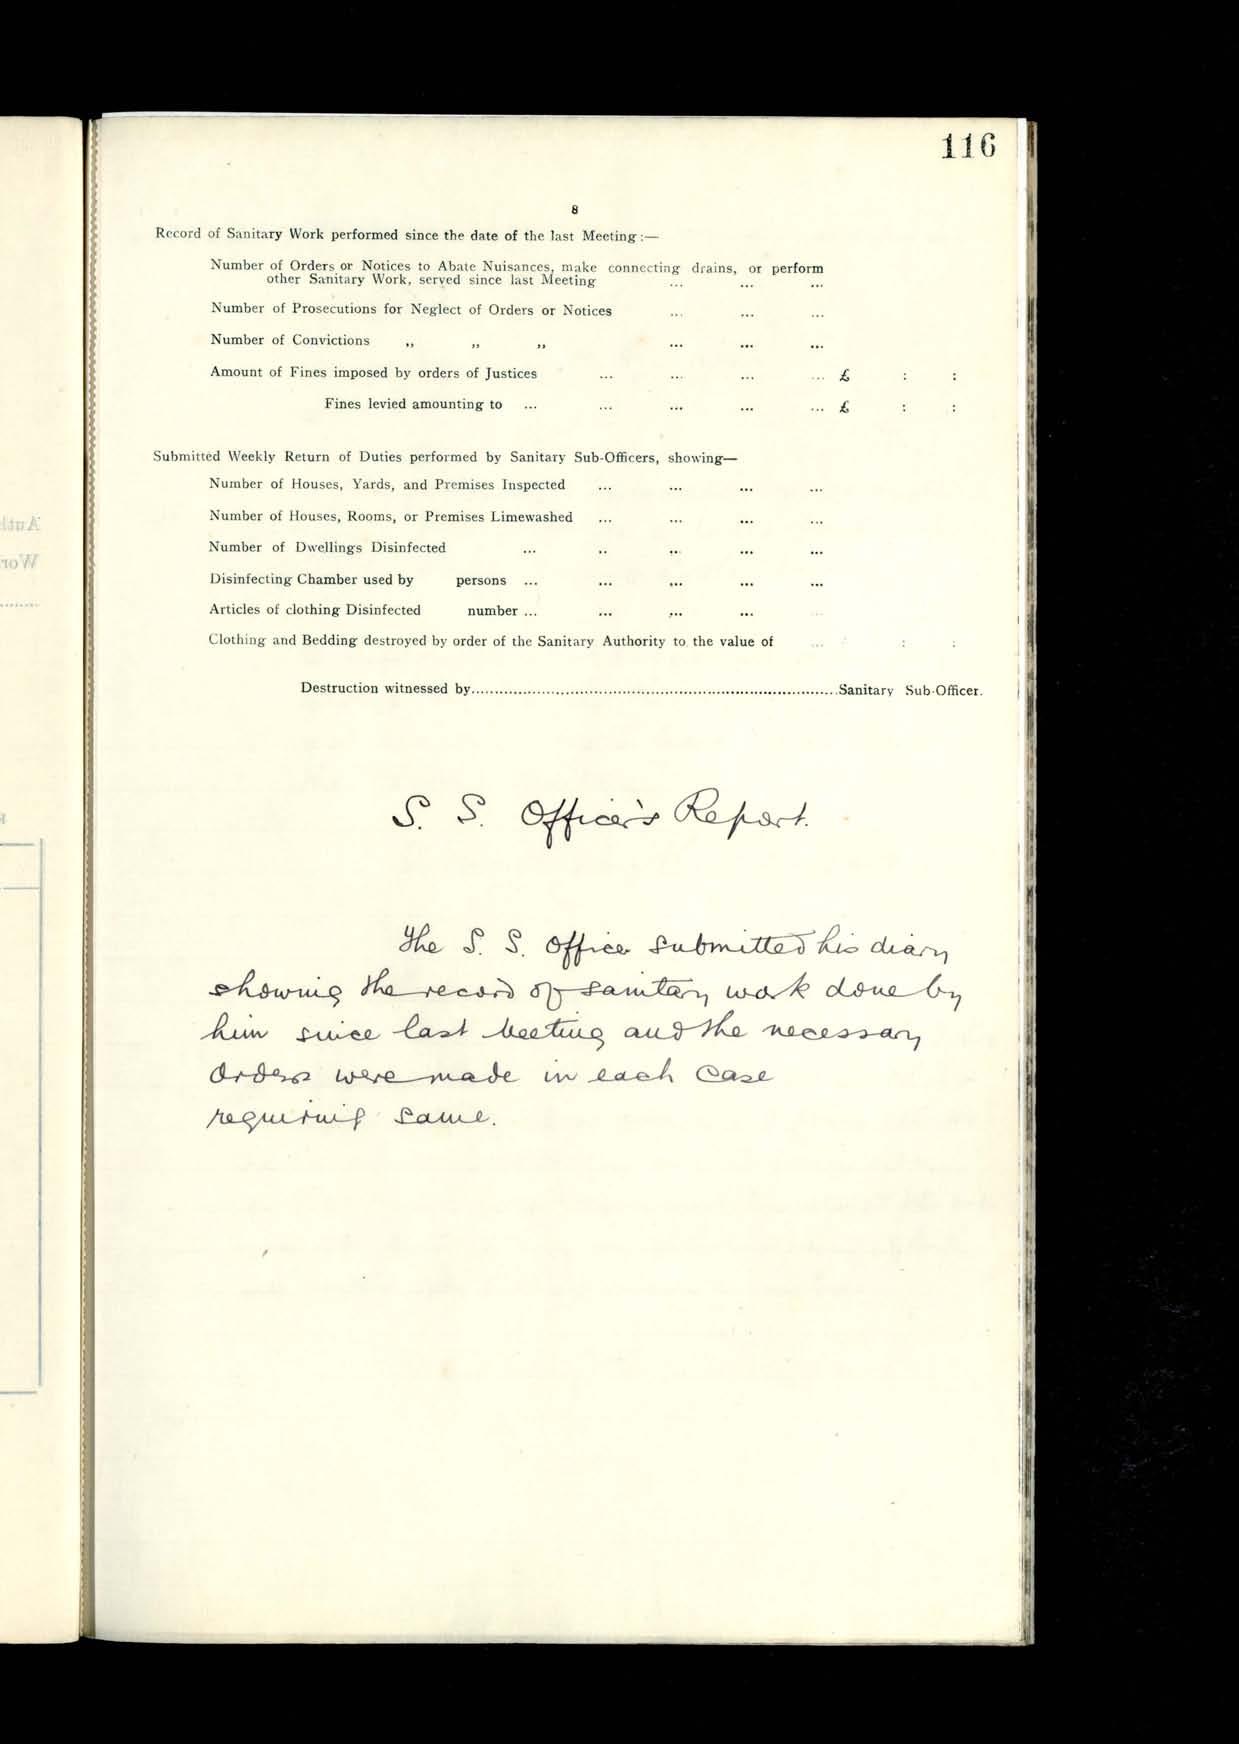 116
8
Record of Sanitary Work performed since the date of the last Meeting :—
Number of Orders or Notices to Abate Nuisances, make connecting drains, or perform
other Sanitary Work, served since last Meeting ... ... ...
Number of Prosecutions for Neglect of Orders or Notices ... ... ...
Number of Convictions „ „ „ ... ... ...
Amount of Fines imposed by orders of Justices ... ... ... ... £ : :
Fines levied amounting to ... ... ... ... ... £ : :
Submitted Weekly Return of Duties performed by Sanitary Sub-Officers, showing—
Number of Houses, Yards, and Premises Inspected ... ... ... ...
Number of Houses, Rooms, or Premises Limewashed ... ... ... ...
Number of Dwellings Disinfected ... .. ... ... ...
Disinfecting Chamber used by persons ... ... ... ... ...
Articles of clothing Disinfected number ... ... ... ... ...
Clothing and Bedding destroyed by order of the Sanitary Authority to the value of ... : :
Destruction witnessed by..............................................................................Sanitary Sub-Officer.
S. S. Officer's Report.
The S. S. Officer submitted his diary
showing the record of sanitary work done by
him since last Meeting and the necessary
Orders were made in each case
requiring same.
Auth
Wor